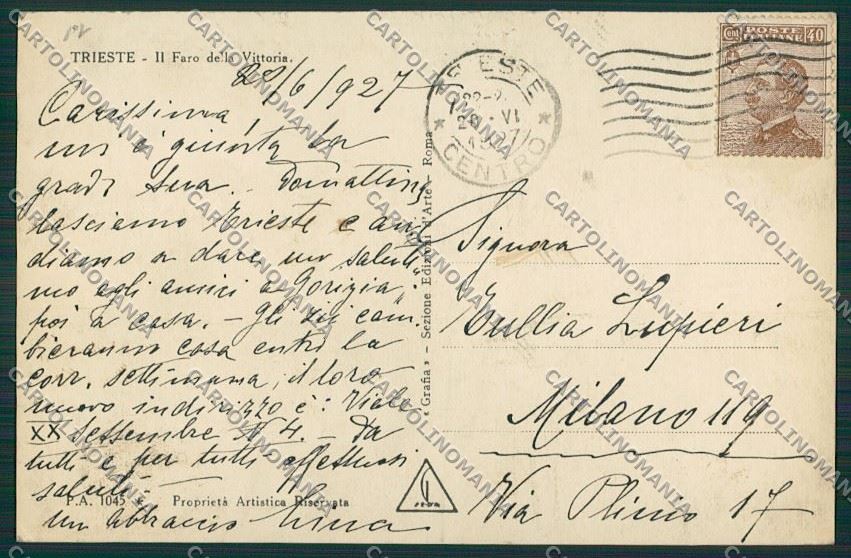 TRIESTE - Il Faro della Vittoria.
28/6/927
Carissima!
mi è giunta la
gradª Sua. - Domattina
lasciamo Trieste e an,
diamo a dare un salut
ino agli amici a Gorizia,
poi a casa. - Gli zii cam,
bieranno casa entro la
corr. settimana, il loro
nuovo indirizzo è: Viale
XX Settembre N 4. - Da
tutti e per tutti affettuosi
saluti
un abbraccio Nina
P.A. 1045 Proprietà Artistica Riservata
« Grafia » - Sezione Edizioni d'Arte - Roma
TRIESTE
28 · VI
CENTRO
Cent POSTE ITALIANE 40
Signora
Tullia Lupieri
Milano 119
Via Plinio 17
CARTOLINOMANIA